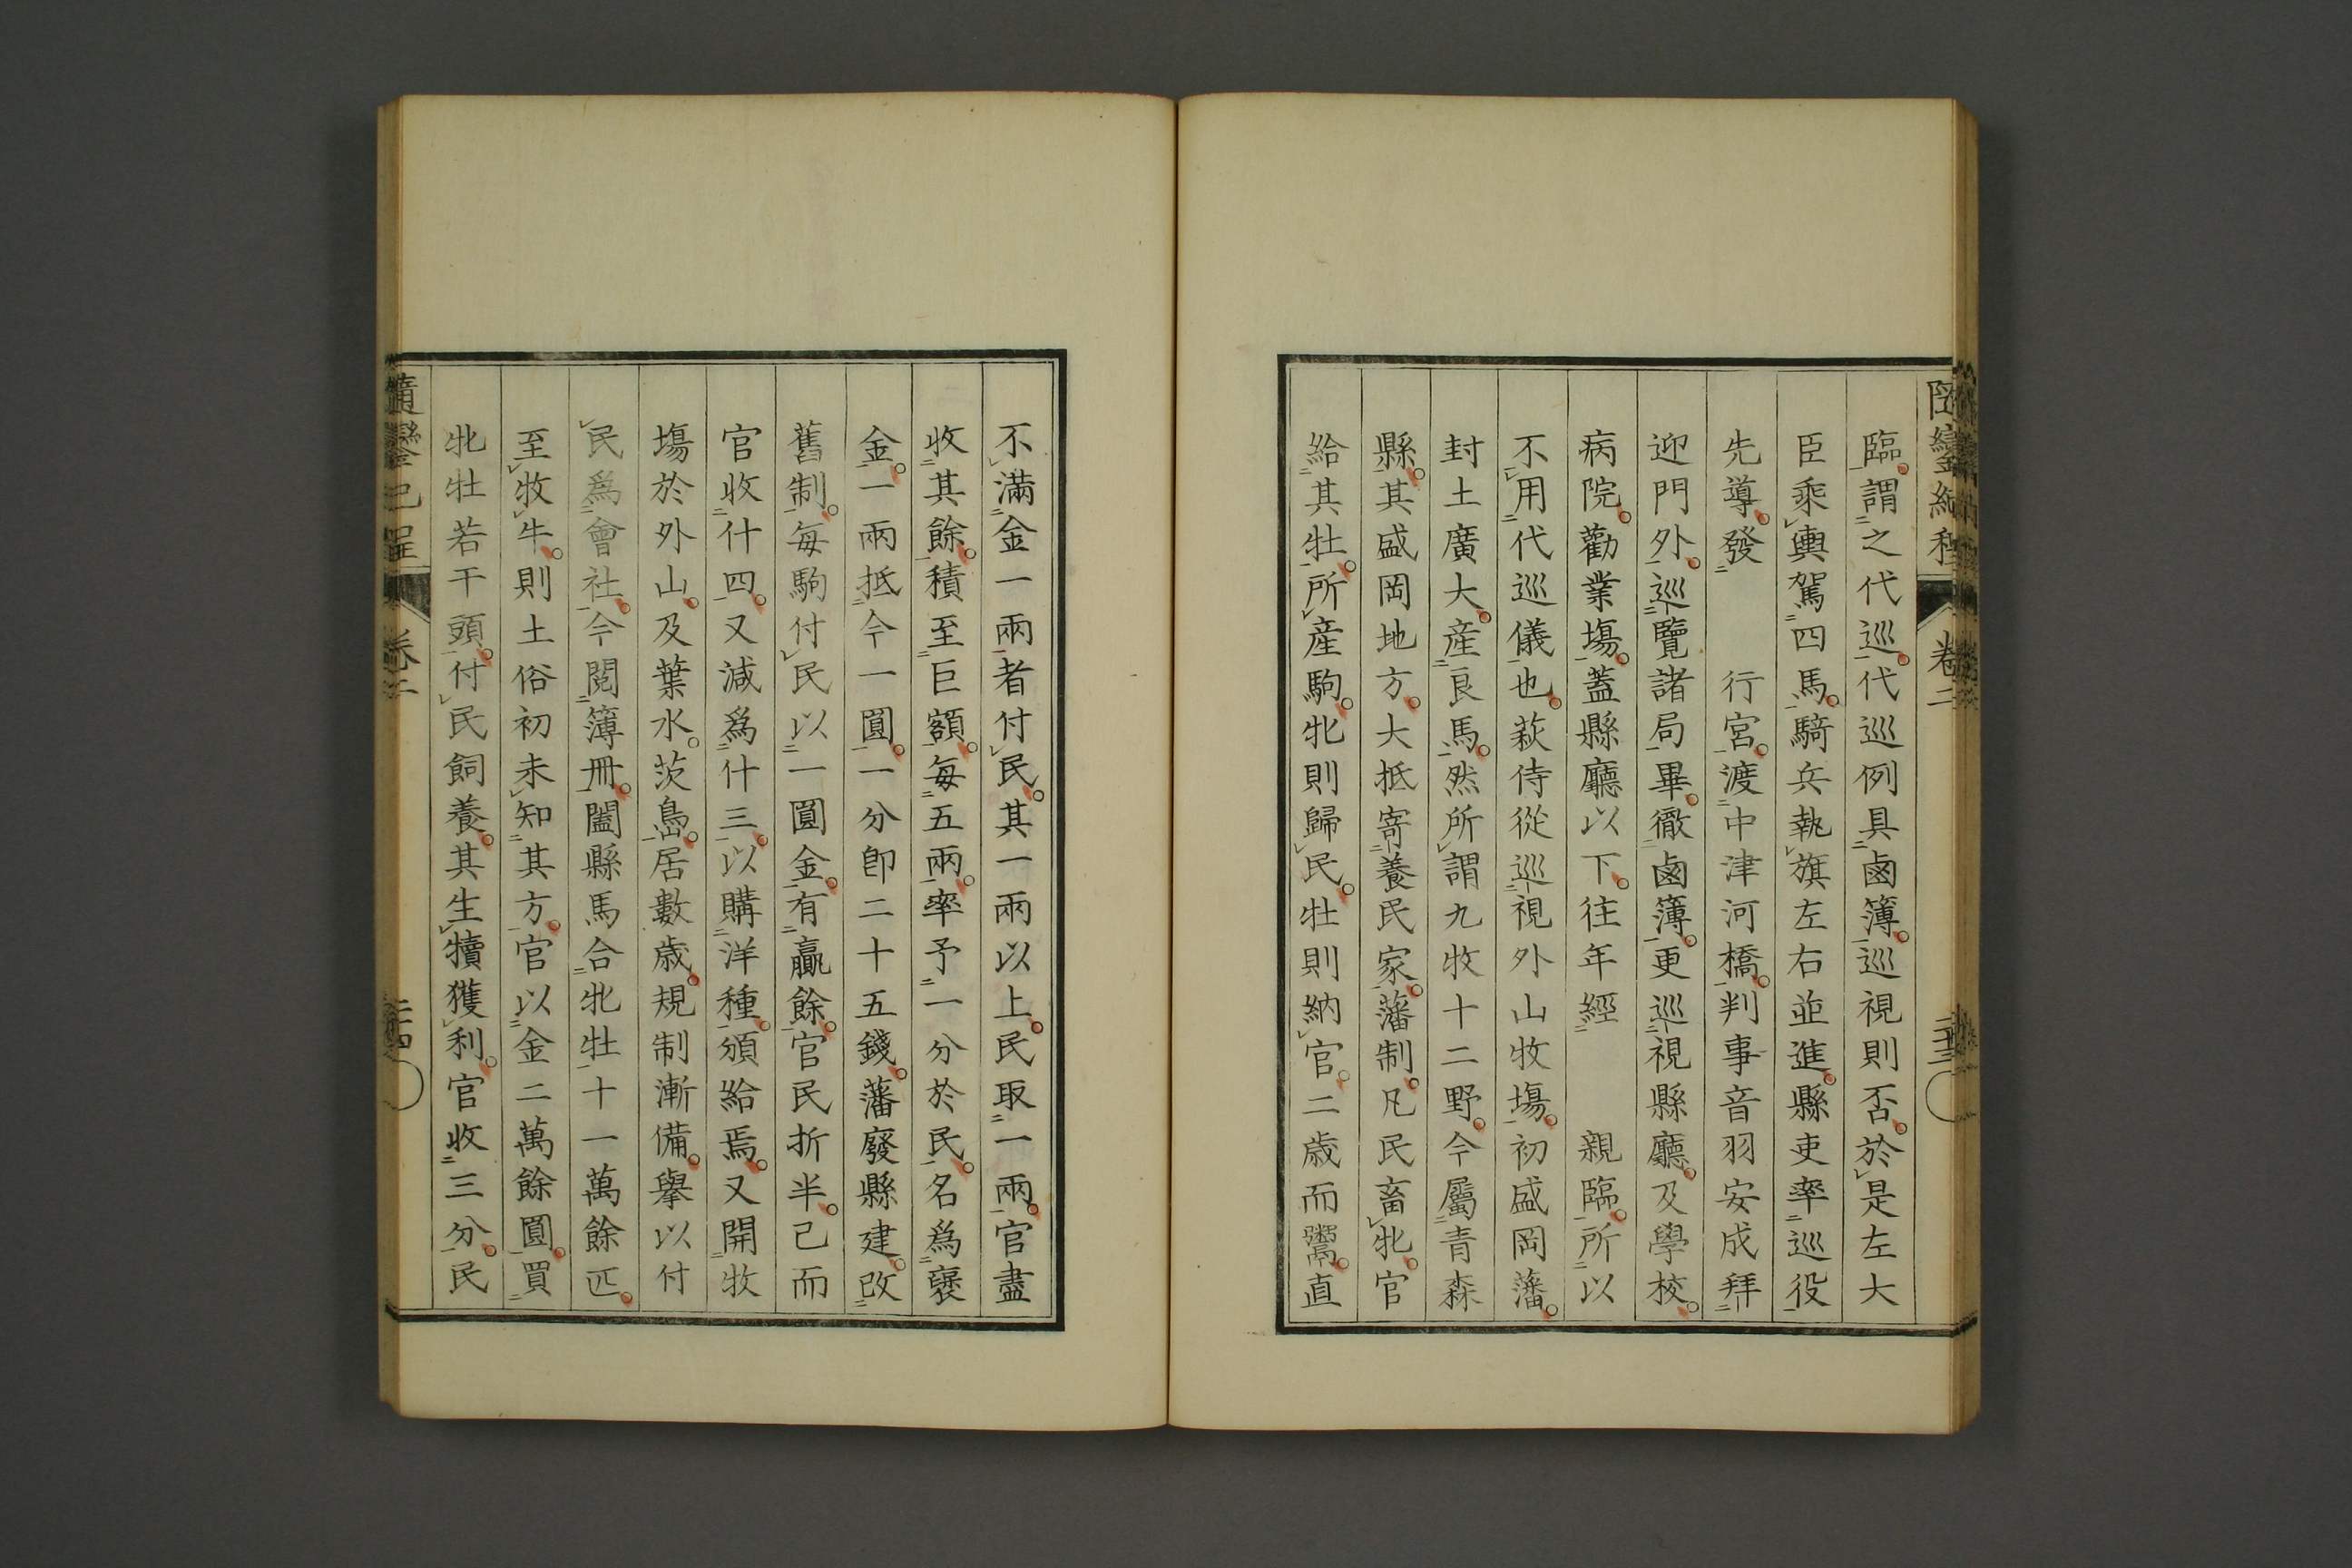 隨鑾紀程 卷二 二十三
臨。謂之代巡。代巡例具鹵簿。巡視則否。於是左大
臣乘輿駕四馬。騎兵執旗左右並進。縣吏率巡役
先導。發 行宮。渡中津河橋。判事音羽安成拜
迎門外。巡覽諸局畢。徹鹵簿。更巡視縣廳。及學校。
病院。勸業場。蓋縣廳以下。往年經 親臨。所以
不用代巡儀也。萩侍從巡視外山牧場。初盛岡藩。
封土廣大。產良馬。然所謂九牧十二野。今屬青森
縣。其盛岡地方。大抵寄養民家。藩制。凡民畜牝。官
給其牡。所產駒。牝則歸民。牡則納官。二歲而鬻。直
不滿金一兩者付民。其一兩以上。民取一兩。官盡
收其餘。積至巨額。每五兩。率予一分於民。名爲褒
金。一兩抵今一圓。一分卽二十五錢。藩廢縣建。改
舊制。每駒付民以一圓金。有贏餘。官民折半。已而
官收什四。又減爲什三。以購洋種。頒給焉。又開牧
場於外山。及葉水。茨島。居數歲。規制漸備。擧以付
民爲會社。今閱簿冊。闔縣馬合牝牡十一萬餘匹。
至牧牛。則土俗初未知其方。官以金二萬餘圓。買
牝牡若干頭。付民飼養。其生犢獲利。官收三分。民
隨鑾紀程 卷二 二十四